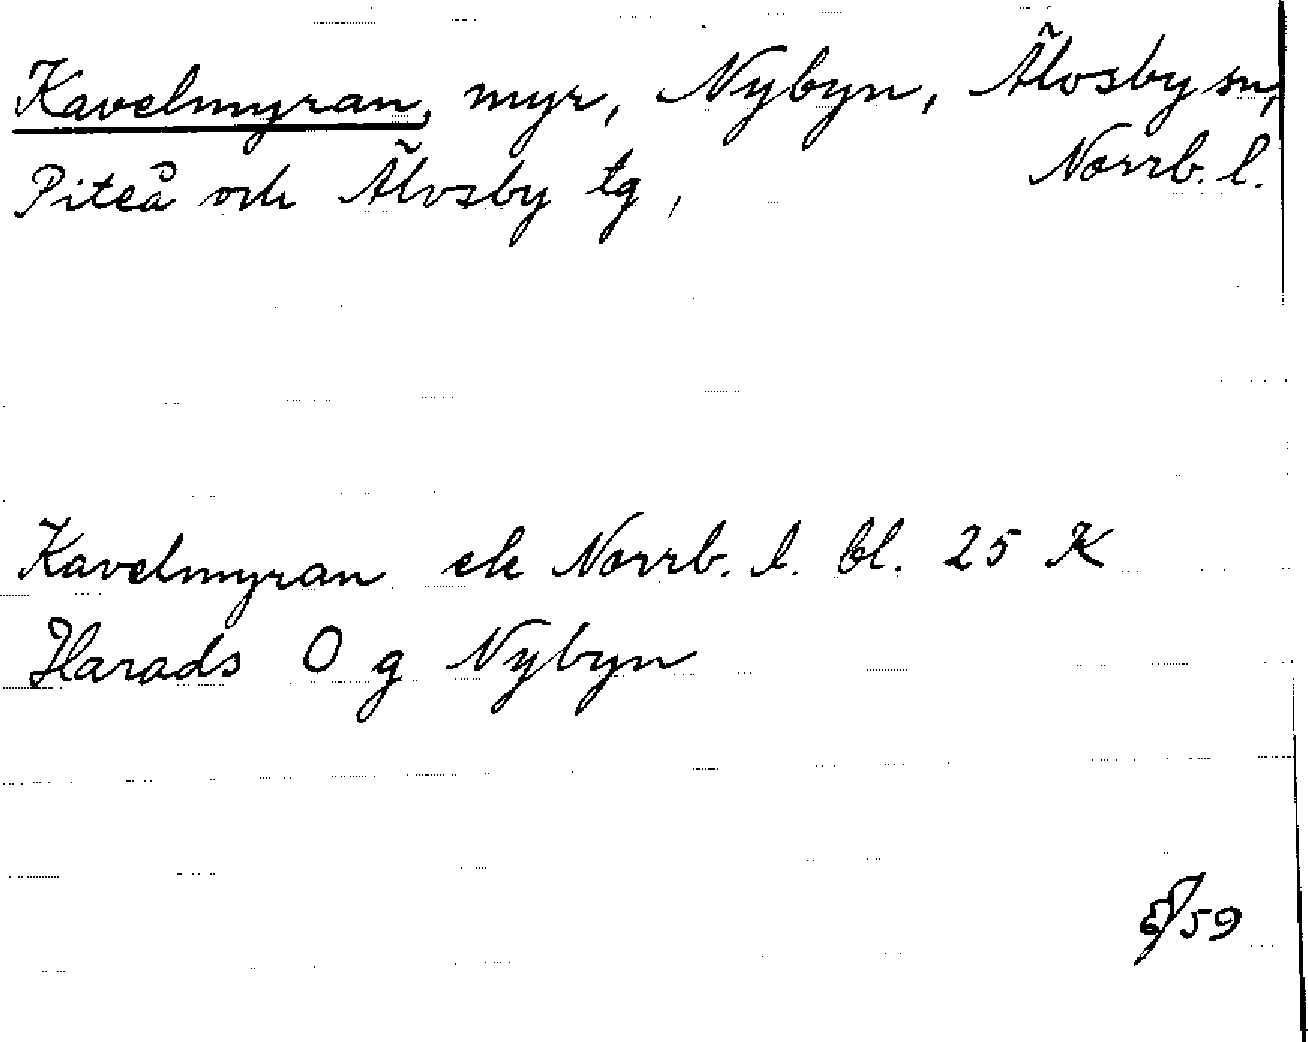 Kavelmyran, myr, Nybyn, Älvsby sn,
Norrb. l.
Piteå och Älvsby tg,
Kavelmyran ek Norrb. l. bl. 25 K
Harads O g Nybyn
59